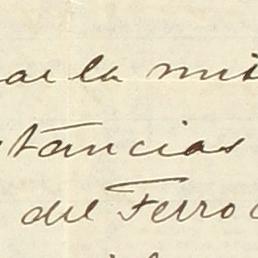 ar la mit
stancias
del Ferro